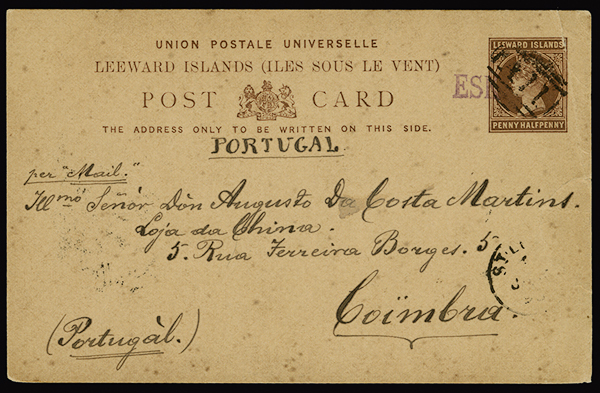 UNION POSTALE UNIVERSELLE
LEEWARD ISLANDS (ILES SOUS LE VENT)
POST CARD
THE ADDRESS ONLY TO BE WRITTEN ON THIS SIDE.
LEEWARD ISLANDS
PENNY HALFPENNY
PORTUGAL
per "Mail."
Illmo Señòr Dòn Augusto Da Costa Martins.
Loja da China.
5. Rua Ferreira Borges. 5
Coïmbra.
(Portugàl.)